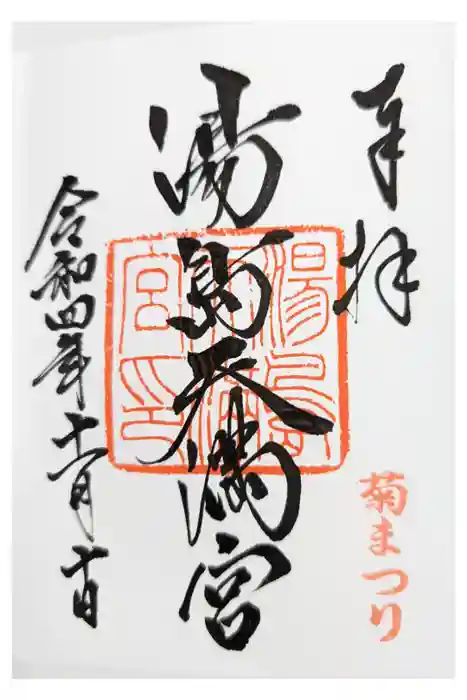 奉拝
菊まつり
湯島天満宮
湯島
天満
宮印
令和四年十一月十日